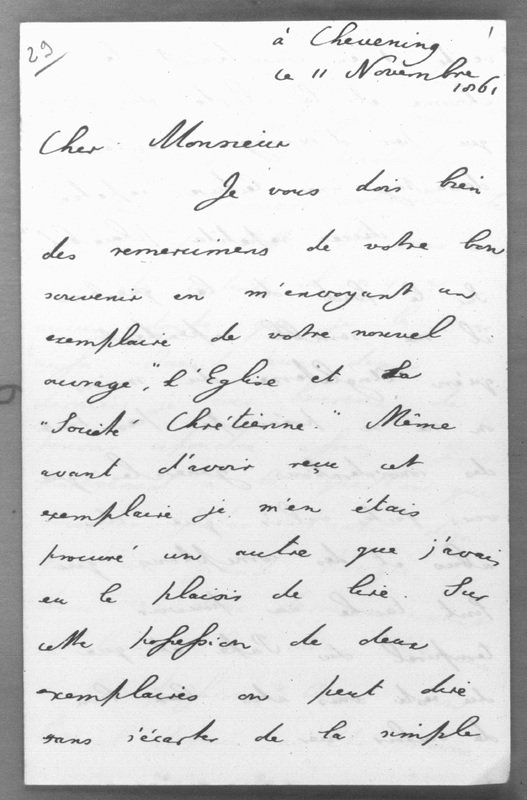 29
à Chevening
ce 11 Novembre
1861
Cher Monsieur
Je vous dois bien
des remercimens de votre bon
souvenir en m'envoyant un
exemplaire de votre nouvel
ouvrage, "L'Eglise et la
"Société Chrétienne." Même
avant d'avoir reçu cet
exemplaire je m'en étais
procuré un autre que j'avais
eu le plaisir de lire. Sur
cette possession de deux
exemplaires on peut dire
sans s'écarter de la simple